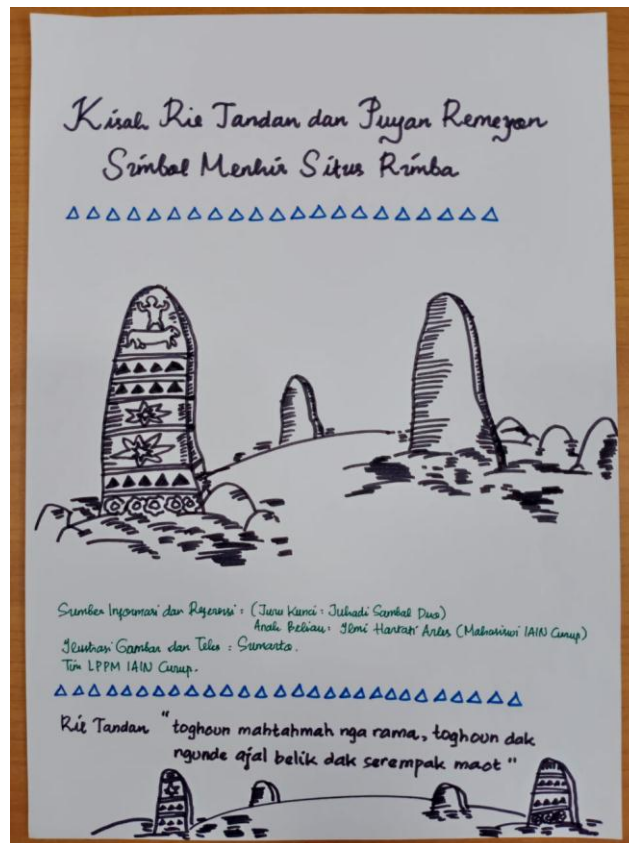 Kisah Rie Tandan dan Puyan Remeyon
Simbol Menhir Situs Rimba
Sumber Informasi dan Referensi : (Juru Kunci : Juhadi Sambal Dua)
Anak Beliau : Ilmi Hartati Arles (Mahasiswi IAIN Curup)
Ilustrasi Gambar dan Teks : Sumarto.
Tim LPPM IAIN Curup.
Rie Tandan "toghoun mahtahmah nga rama, toghoun dak
ngunde ajal belik dak serempak maot"